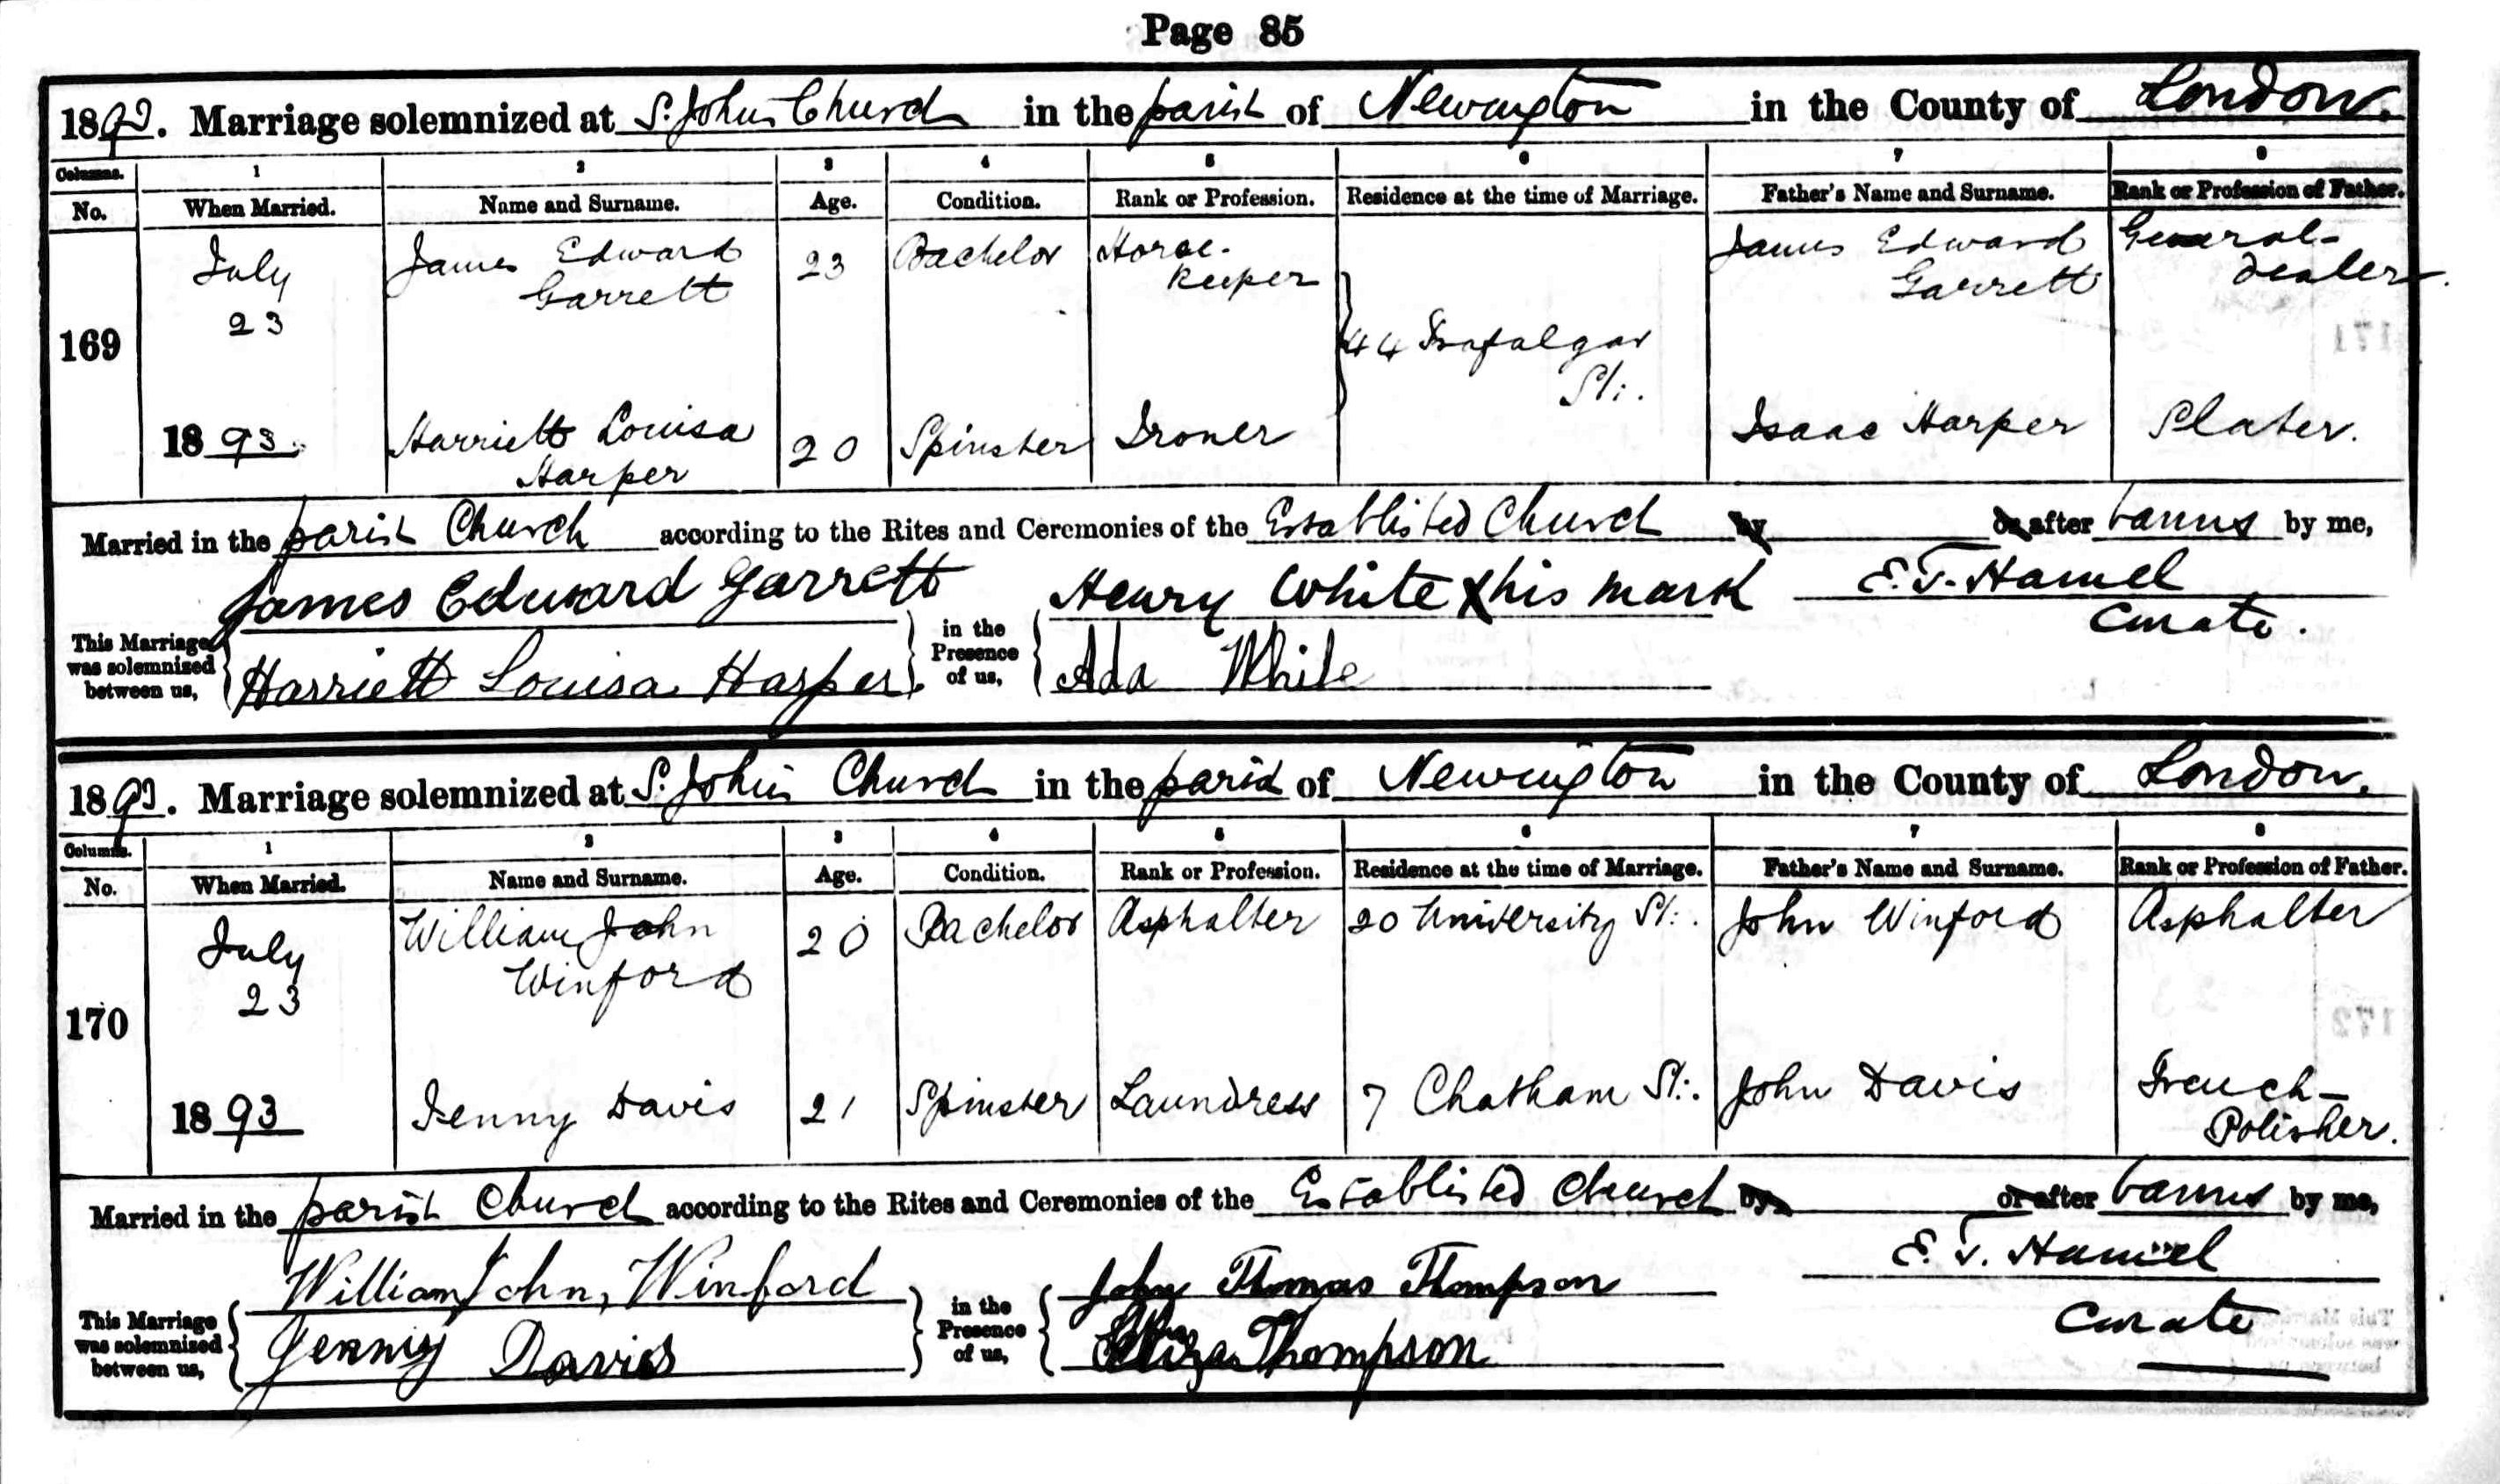 Page 85
1893. Marriage solemnized at S. John's Church in the parish of Newington in the County of London.
Columns. 1 2 3 4 5 6 7 8
No. When Married. Name and Surname. Age. Condition. Rank or Profession. Residence at the time of Marriage. Father's Name and Surname. Rank or Profession of Father.
July James Edward 23 Bachelor Horse- James Edward General-
23 Garrett keeper Garrett dealer.
169 44 Trafalgar
St:.
1893. Harriett Louisa 20 Spinster Ironer Isaac Harper Slater.
Harper
Married in the parish Church according to the Rites and Ceremonies of the Established Church by or after banns by me,
James Edward Garrett Henry White X his mark E. T. Hamel
This Marriage was solemnized between us, in the Presence of us, Curate.
Harriett Louisa Harper. Ada White
1893. Marriage solemnized at S. John's Church in the parish of Newington in the County of London.
Columns. 1 2 3 4 5 6 7 8
No. When Married. Name and Surname. Age. Condition. Rank or Profession. Residence at the time of Marriage. Father's Name and Surname. Rank or Profession of Father.
July William John 20 Bachelor Asphalter 20 University St:. John Winford Asphalter
23 Winford
170
1893 Jenny Davis 21 Spinster Laundress 7 Chatham St:. John Davis French-
Polisher.
Married in the parish Church according to the Rites and Ceremonies of the Established Church by or after banns by me,
William John Winford John Thomas Thompson E. T. Hamel
This Marriage was solemnized between us, in the Presence of us, Curate
Jenny Davis Eliza Thompson